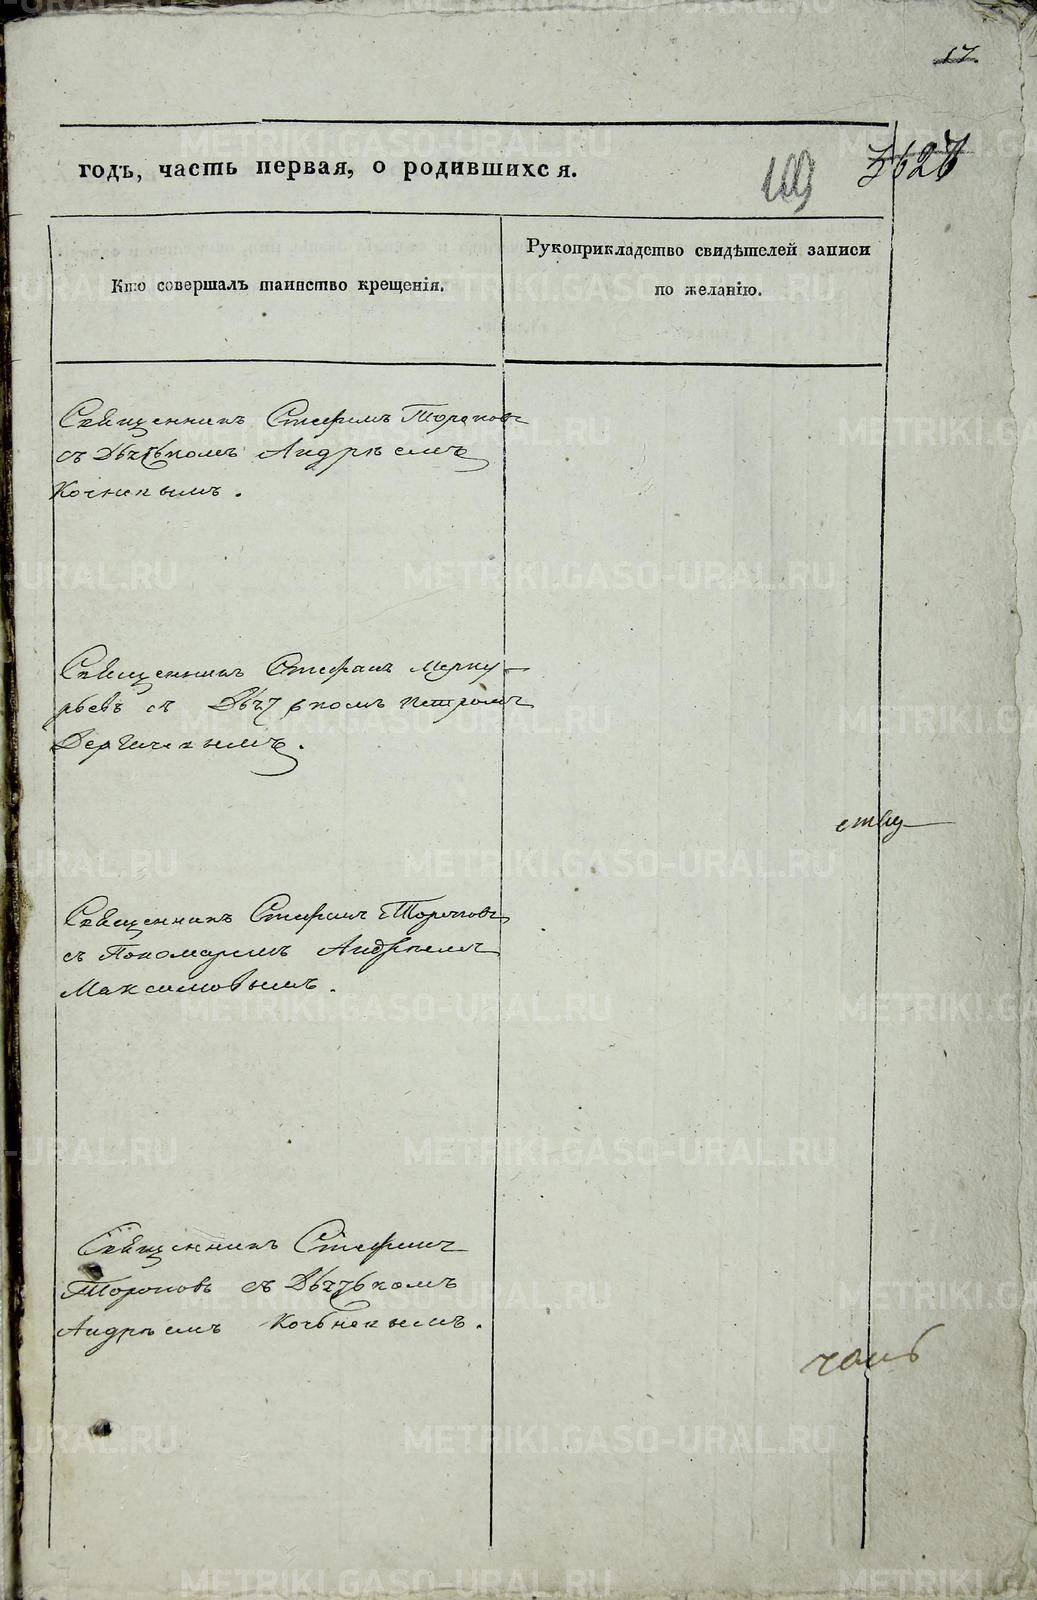 17
годъ, часть первая, о родившихся.
109
Кто совершалъ таинство крещенія.
Рукоприкладство свидѣтелей записи
по желанію.
Священникъ Стефанъ Тороповъ
съ Дьячкомъ Андреемъ
Кочневымъ.
Священникъ Стефанъ Мерку-
рьевъ съ Дьячкомъ Петромъ
Священникъ Стефанъ Тороповъ
съ Пономаремъ Андреемъ
Максимовымъ.
Священникъ Стефанъ
Тороповъ съ Дьячкомъ
Андреемъ Кочневымъ.
METRIKI.GASO-URAL.RU